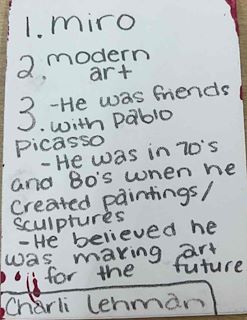 1. miro
2. modern
art
3. -He was friends
with pablo
picasso
- He was in 70's
and 80's when he
created paintings/
sculptures
- He believed he
was making art
for the future
Charli Lehman